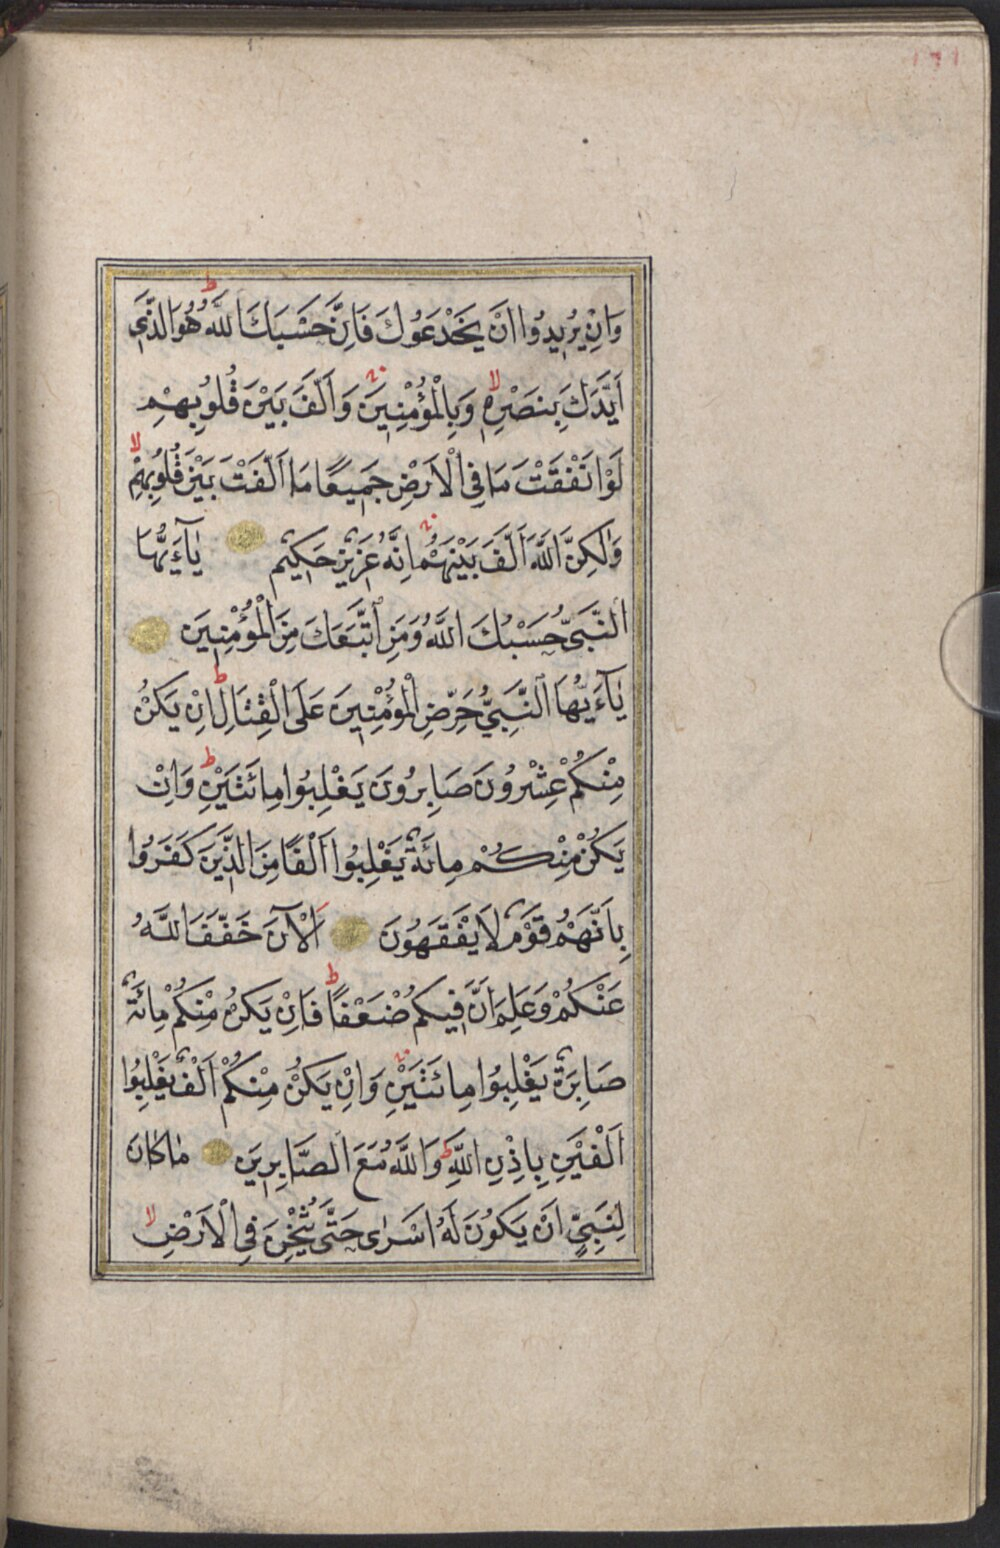 وَاِنْ يُرِيدُوا اَنْ يَخْدَعُوكَ فَاِنَّ حَسْبَكَ اللّٰهُ ط هُوَ الَّذِى
اَيَّدَكَ بِنَصْرِهِ لا وَبِالْمُؤْمِنِينَ وَاَلَّفَ بَيْنَ قُلُوبِهِمْ
لَوْ اَنْفَقْتَ مَا فِى الْاَرْضِ جَمِيعًا مَا اَلَّفْتَ بَيْنَ قُلُوبِهِمْ لا
وَلٰكِنَّ اللّٰهَ اَلَّفَ بَيْنَهُمْ اِنَّهُ عَزِيزٌ حَكِيمٌ يَٓا اَيُّهَا
النَّبِىُّ حَسْبُكَ اللّٰهُ وَمَنِ اتَّبَعَكَ مِنَ الْمُؤْمِنِينَ
يَٓا اَيُّهَا النَّبِىُّ حَرِّضِ الْمُؤْمِنِينَ عَلَى الْقِتَالِ ط اِنْ يَكُنْ
مِنْكُمْ عِشْرُونَ صَابِرُونَ يَغْلِبُوا مِائَتَيْنِ ط وَاِنْ
يَكُنْ مِنْكُمْ مِائَةٌ يَغْلِبُوا اَلْفًا مِنَ الَّذِينَ كَفَرُوا
بِاَنَّهُمْ قَوْمٌ لَا يَفْقَهُونَ اَلْآنَ خَفَّفَ اللّٰهُ
عَنْكُمْ وَعَلِمَ اَنَّ فِيكُمْ ضُعْفًا ط فَاِنْ يَكُنْ مِنْكُمْ مِائَةٌ
صَابِرَةٌ يَغْلِبُوا مِائَتَيْنِ وَاِنْ يَكُنْ مِنْكُمْ اَلْفٌ يَغْلِبُوا
اَلْفَيْنِ بِاِذْنِ اللّٰهِ ط وَاللّٰهُ مَعَ الصَّابِرِينَ مَا كَانَ
لِنَبِىٍّ اَنْ يَكُونَ لَهُ اَسْرٰى حَتّٰى يُثْخِنَ فِى الْاَرْضِ لا